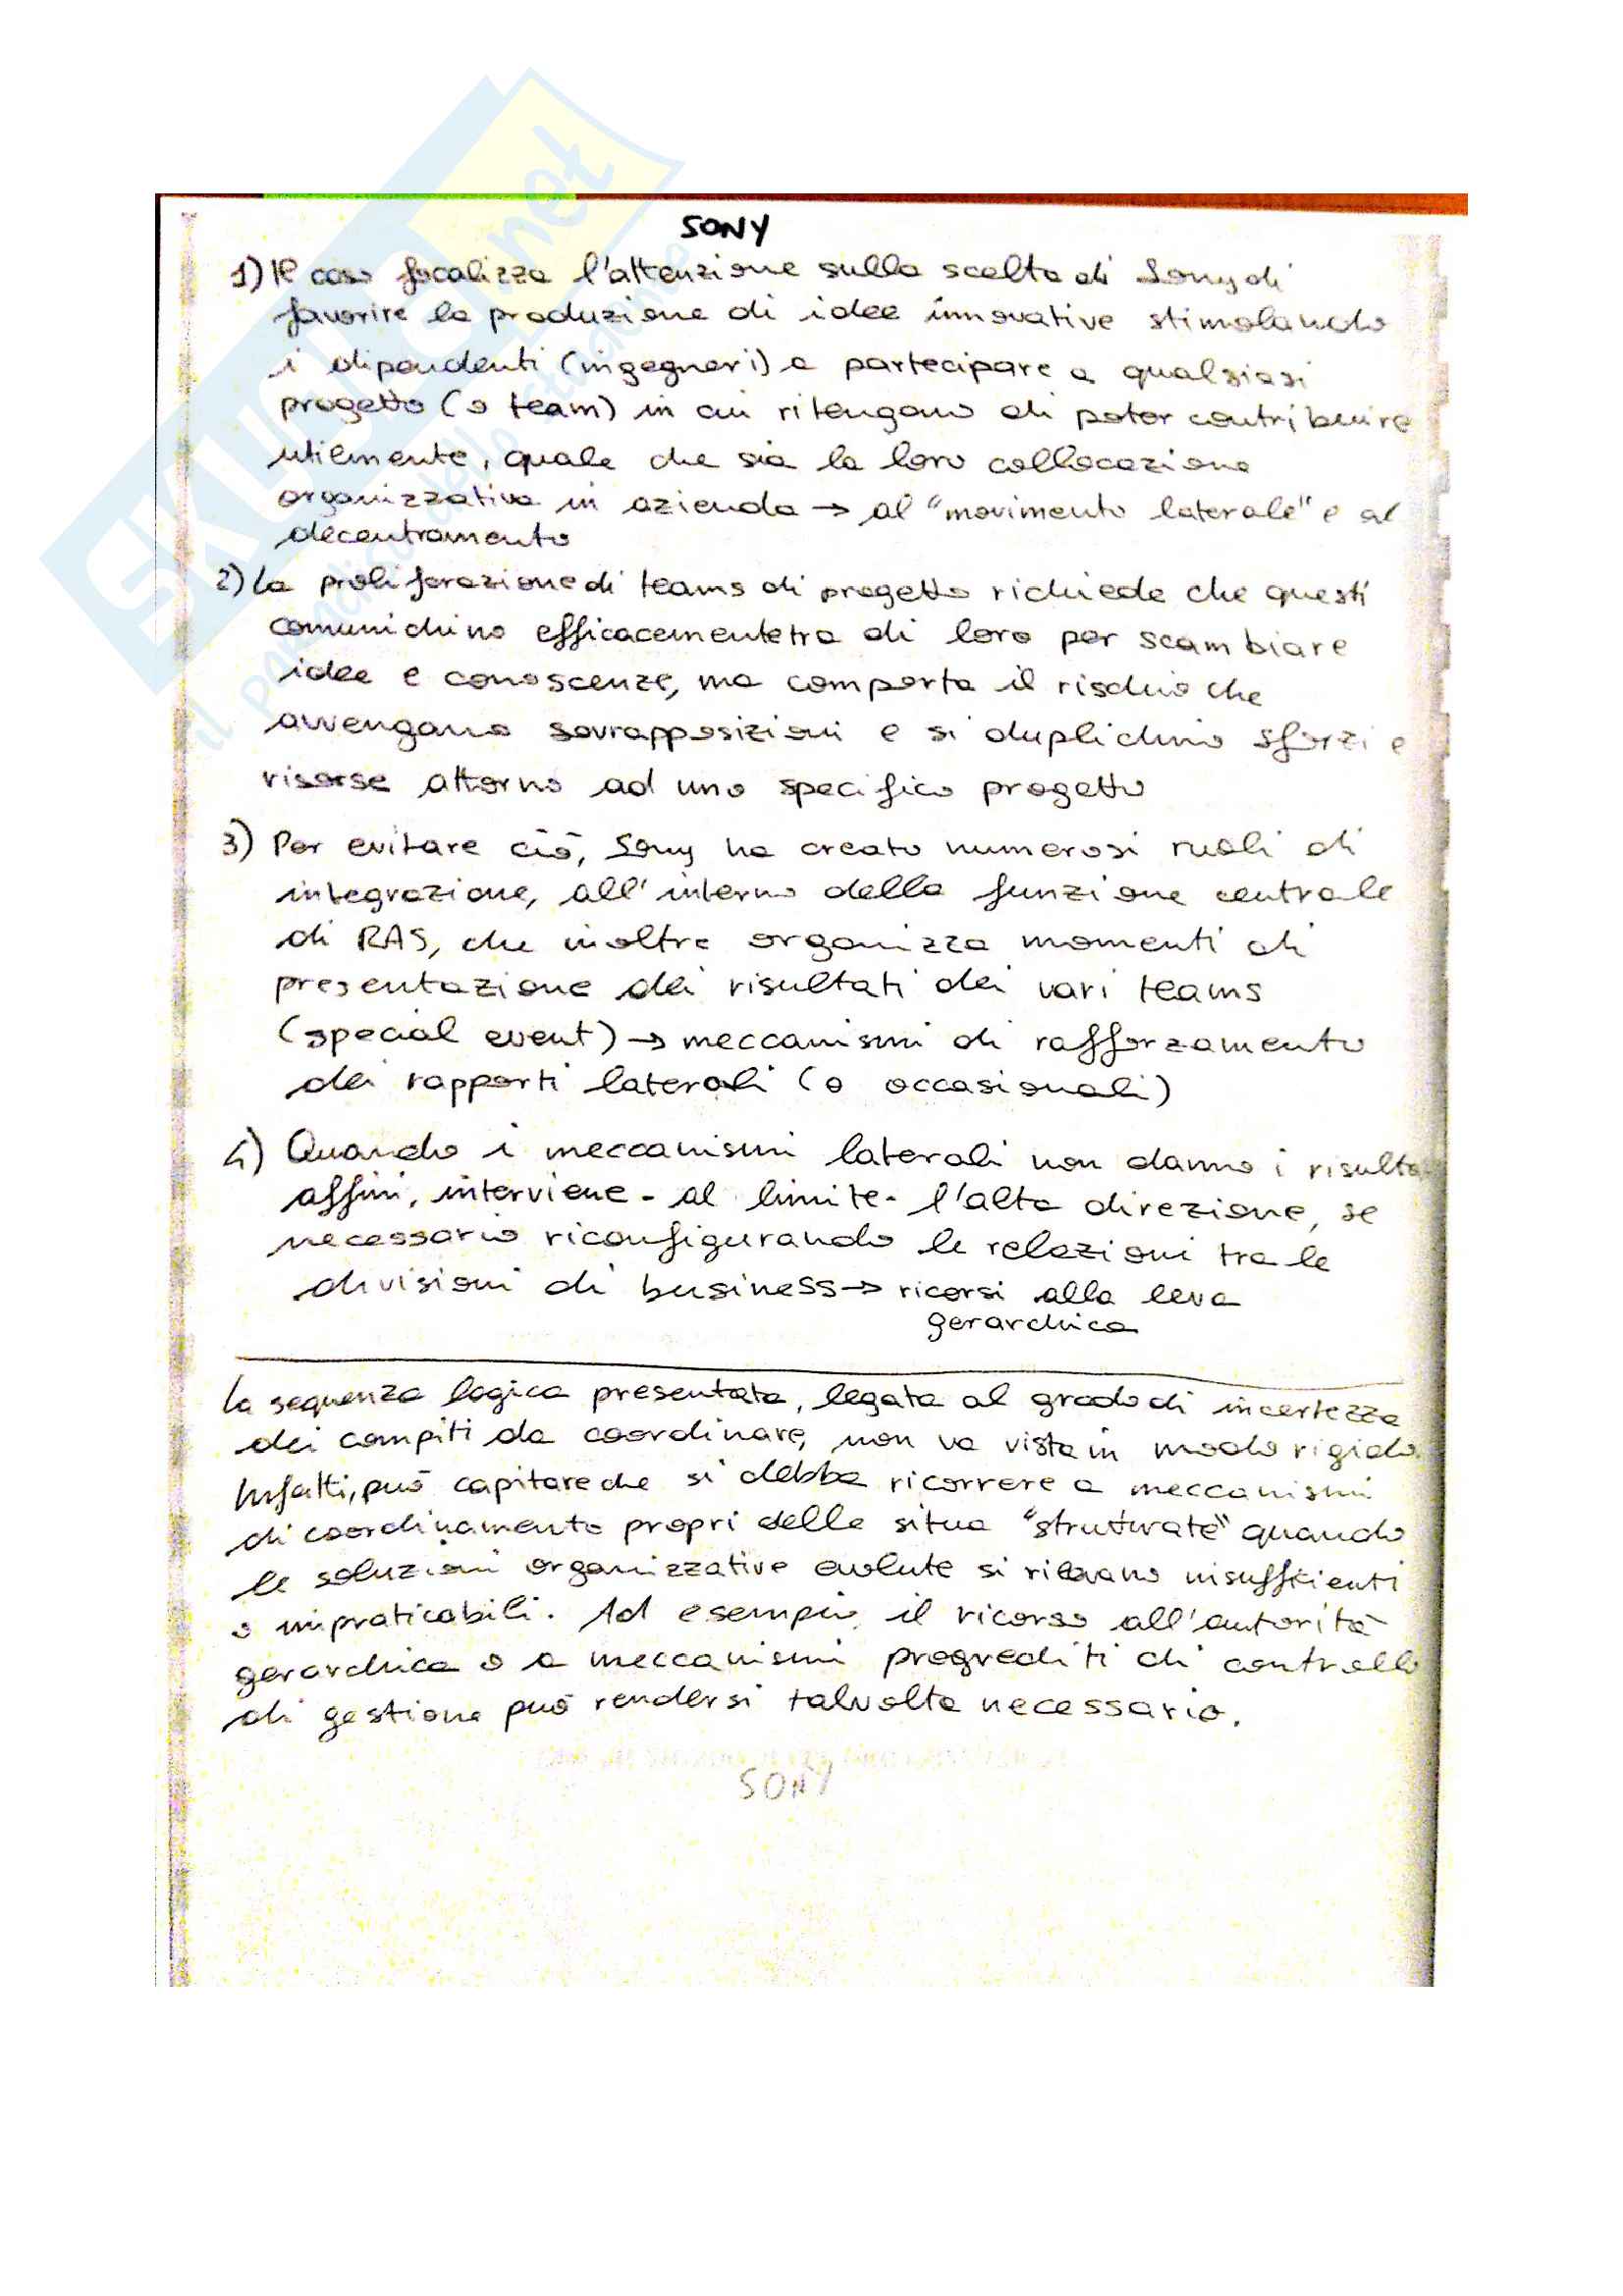 SONY
1) Il caso focalizza l'attenzione sulla scelta di Sony di
favorire la produzione di idee innovative stimolando
i dipendenti (ingegneri) a partecipare a qualsiasi
progetto (o team) in cui ritengano di poter contribuire
utilmente, quale che sia la loro collocazione
organizzativa in azienda → al "movimento laterale" e al
decentramento
2) La proliferazione di teams di progetto richiede che questi
comunichino efficacemente tra di loro per scambiare
idee e conoscenze, ma comporta il rischio che
avvengano sovrapposizioni e si duplichino sforzi e
risorse attorno ad uno specifico progetto
3) Per evitare ciò, Sony ha creato numerosi ruoli di
integrazione, all'interno della funzione centrale
di R&S, che inoltre organizza momenti di
presentazione dei risultati dei vari teams
(special event) → meccanismi di rafforzamento
dei rapporti laterali (o occasionali)
4) Quando i meccanismi laterali non danno i risulta
affini, interviene - al limite - l'alta direzione, se
necessario riconfigurando le relazioni tra le
divisioni di business → ricorsi alla leva
gerarchica
La sequenza logica presentata, legata al grado di incertezza
dei compiti da coordinare, non va vista in modo rigido.
Infatti, può capitare che si debba ricorrere a meccanismi
di coordinamento propri delle situa "strutturate" quando
le soluzioni organizzative evolute si rilevano insufficienti
o impraticabili. Ad esempio, il ricorso all'autorità
gerarchica o a meccanismi progrediti di controllo
di gestione può rendersi talvolta necessario.
SONY
SKUOLA.net
il paradiso dello studente